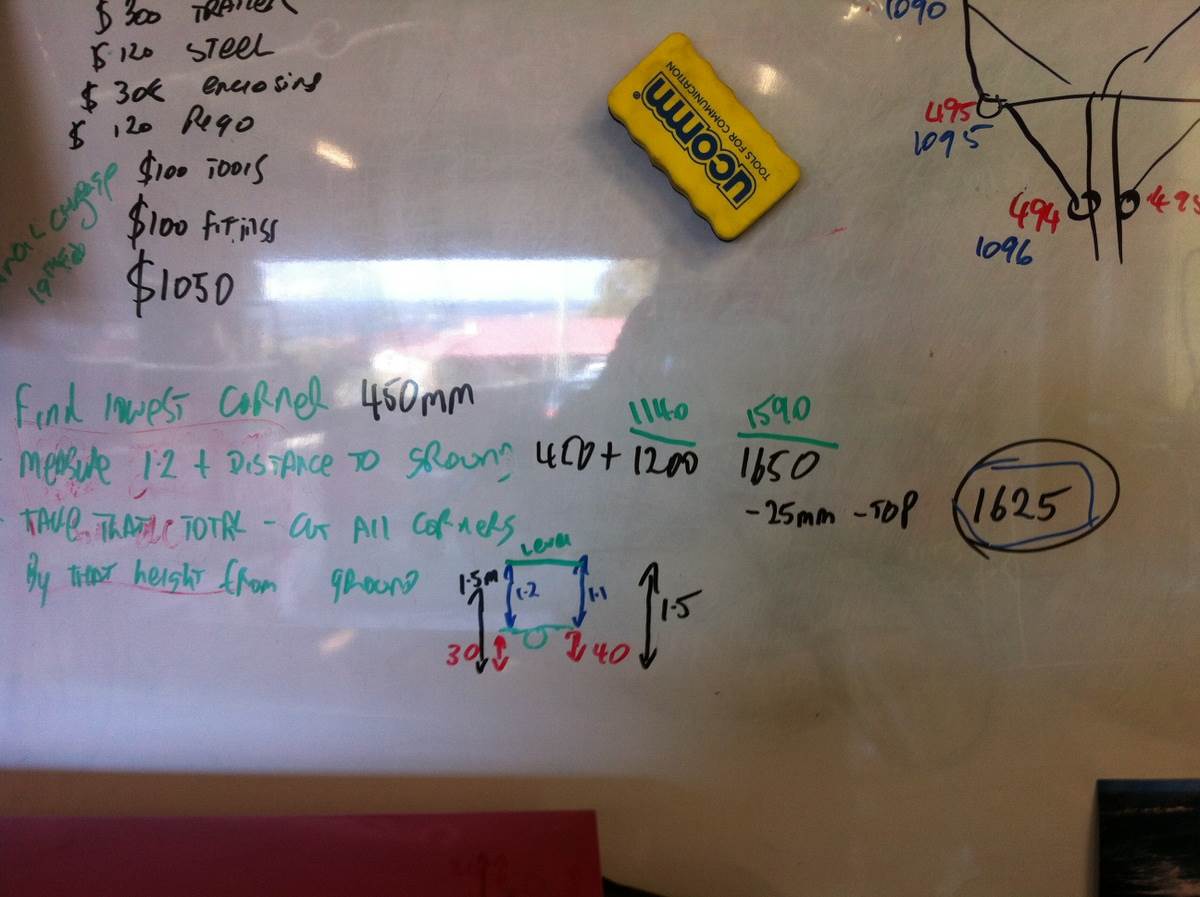 $300 TRAILER
$120 STEEL
$30€ enclosing
$120 Rego
$100 TOOLS
$100 fittings
$1050
ucomm
TOOLS FOR COMMUNICATION
1090
495
1095
494
1096
495
Find lowest CORNER 450mm
MEASURE 1.2 + DISTANCE TO GROUND 450 + 1200 1650
1140 1590
TAKE THAT TOTAL - CUT ALL CORNERS
-25mm -TOP
1625
By THAT height from ground
Level
1.5m
1.2
1.1
1.5
30
40